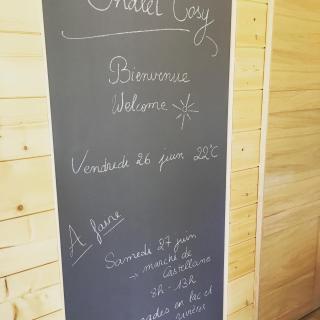 Chalet Cosy
Bienvenue
Welcome
Vendredi 26 juin 22°C
A faire
Samedi 27 juin
→ marché de
Castellane
8h - 13h
ades en lac et
rivières